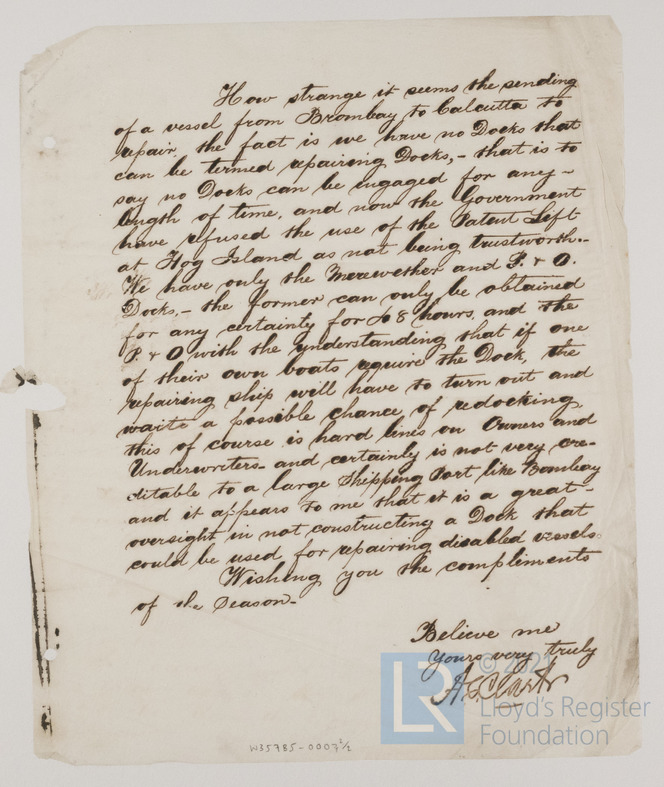 How strange it seems the sending
of a vessel from Brombay to Calcutta to
repair, the fact is we have no Docks that
can be termed repairing Docks,- that is to
say no Docks can be engaged for any-
length of time, and now the Government
have refused the use of the Patent Lift
at Hog Island as not being trustworth.-
We have only the Merewether and P. & O.
Docks,- the former can only be obtained
for any certainty for 48 hours, and the
P. & O with the understanding that if one
of their own boats require the Dock, the
repairing ship will have to turn out and
waite a possible chance of redocking,
this of course is hard lines on Owners and
Underwriters- and certainly is not very cre-
ditable to a large Shipping Port like Bombay
and it appears to me that it is a great-
oversight in not constructing a Dock that
could be used for repairing disabled vessels.
Wishing you the compliments
of the Season-
Believe me
yours very truly
© 2021
Lloyd's Register
Foundation
LR
W35785-0007